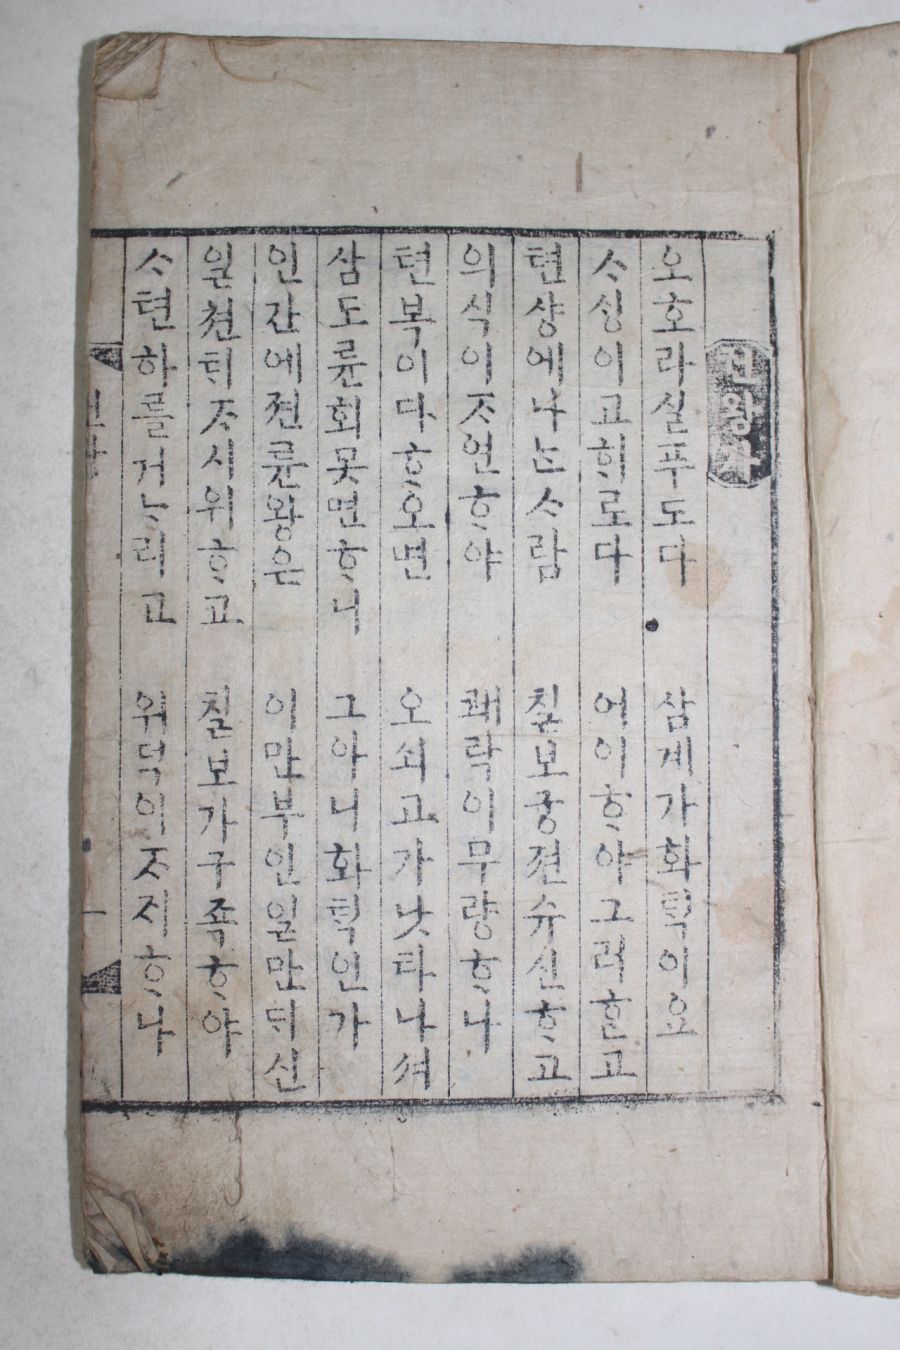 권왕가
오호라실푸도다 삼계가화ᄐᆡᆨ이오
ᄉᆞᄉᆡᆼ이고ᄒᆡ로다 어이ᄒᆞ야그러ᄒᆞᆫ고
텬샹에나ᄂᆞᆫᄉᆞ람 칠보궁젼슈신ᄒᆞ고
의식이ᄌᆞ연ᄒᆞ야 쾌락이무량ᄒᆞ나
텬복이다ᄒᆞ오면 오쇠고가낫타나셔
삼도륜회못면ᄒᆞ니 그아니화ᄐᆡᆨ인가
인간에젼륜왕은 이만부인일만ᄃᆡ신
일쳔ᄐᆡᄌᆞ시위ᄒᆞ고 칠보가구족ᄒᆞ야
ᄉᆞ텬하를거ᄂᆞ리고 위덕이ᄌᆞᄌᆡᄒᆞ나